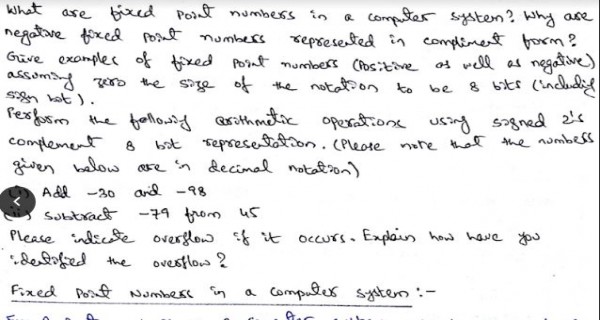 What are fixed Point numbers in a computer system? Why are
negative fixed point numbers represented in compliment form?
Give examples of fixed point numbers (Positive as well as negative)
assuming zero the size of the notation to be 8 bits (including
sign bit).
Perform the following arithmetic operations using signed 2's
complement 8 bit representation. (Please note that the numbers
given below are in decimal notation)
Add -30 and -98
Subtract -79 from 45
Please indicate overflow if it occurs. Explain how have you
identified the overflow?
Fixed Point Numbers in a computer system :-